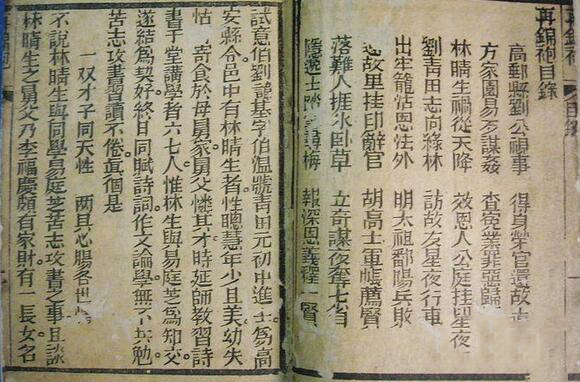 再錦袍 目錄
再錦袍目錄
高郵縣劉公禎事 得身榮官還故土
方家園易歹謀姦 查冤業罪惡歸
林晴生禍從天降 效恩人公庭挂星夜
劉青田志向綠林 訪故友星夜行車
出牢籠沾恩法外 明太祖鄱陽兵敗
故里挂印辭官 胡高士軍帳薦賢
落難人捱氷臥草 立奇謀夜奪七省
隱逸士梅 報深恩義釋一賢
試意伯劉諱基字伯溫號青田元初中進士為高
安縣令邑中有林晴生者性聰慧年少且美幼失
怙 寄食於母舅家舅父憐其才時延師教習詩
書于堂講學者六七人惟林生與易庭芝為知交
遂結為契好終日同賦詩詞作文論學無不共勉
苦志攻書習讀不倦眞個是
一双才子同天性 两具心腸各世
不說林晴生與同學易庭芝苦志攻書之事且談
林晴生之舅父乃李福慶頗有家財有一長女名